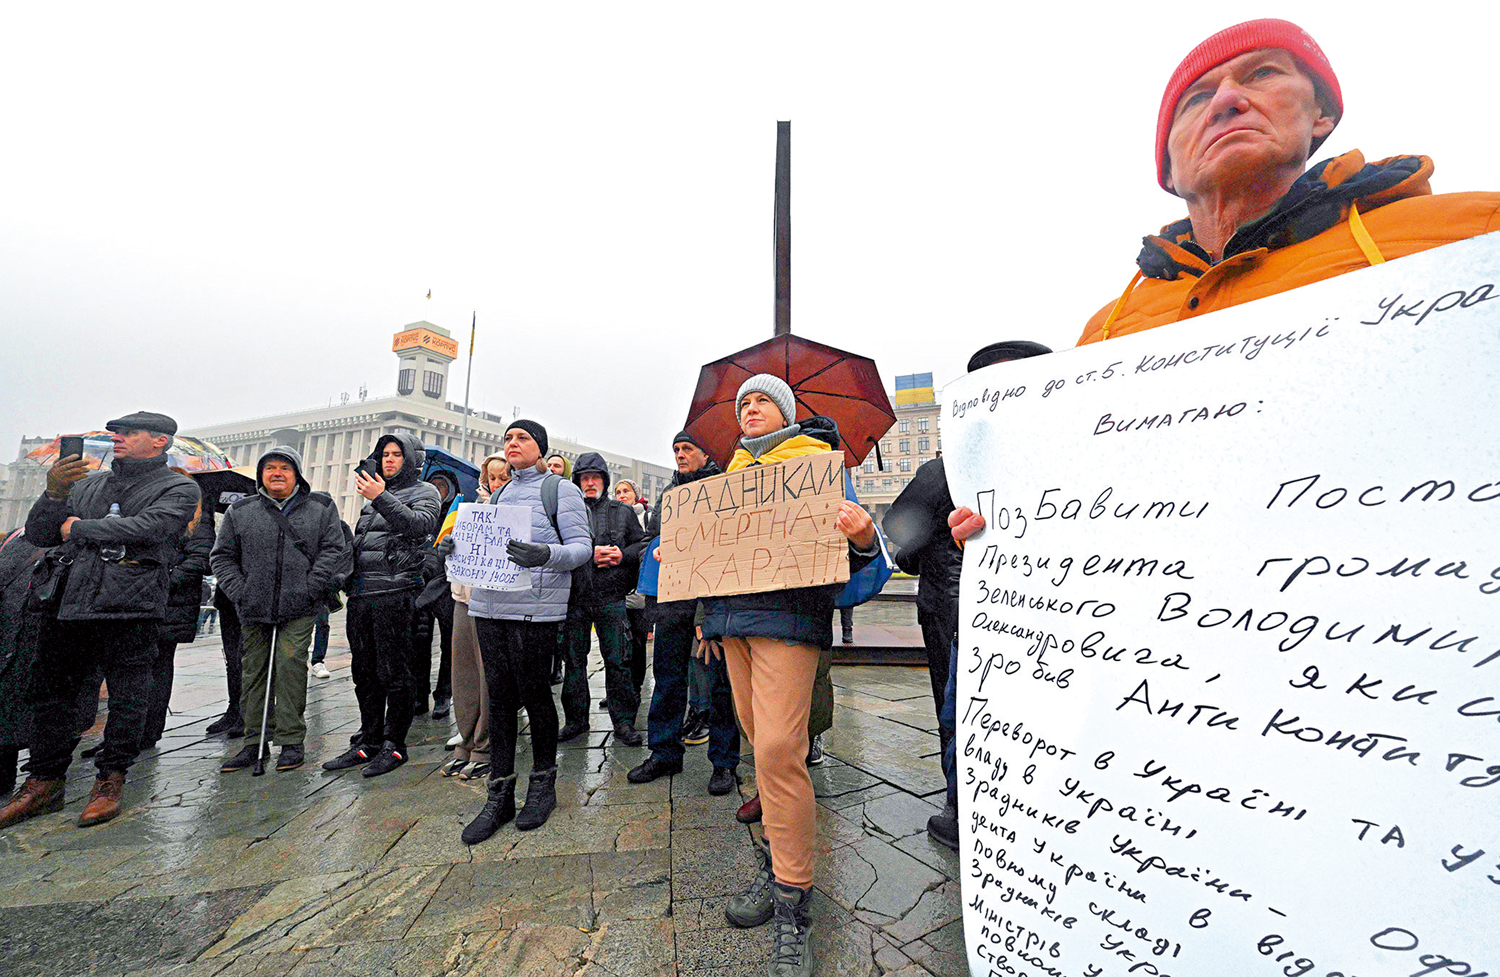 ТАК!
ВИБОРАМ ТА
ЗМІНІ ВЛАДИ
НІ
ЗАКОНУ 14005
ЗРАДНИКАМ
СМЕРТНА
КАРА!!!
Відповідно до ст.5. Конституції Укра
Вимагаю:
Позбавити Поста
Президента грома
Зеленського Володими
Олександровича, який
зробив Анти Консти
Переворот в Україні та
владу в Україні
Зрадників України –
дента України в
повному складі
Зрадників Укра
Міністрів у
повном